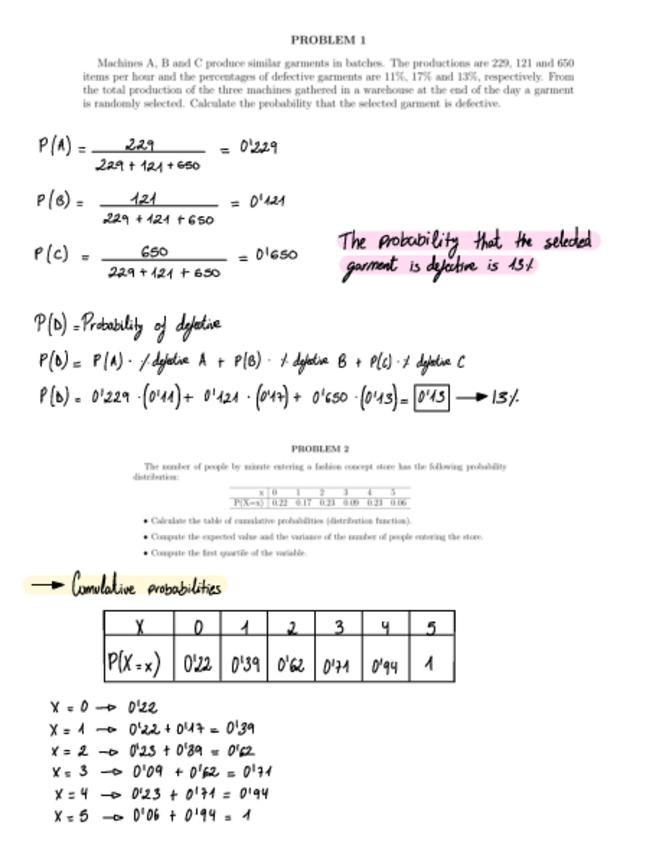 PROBLEM 1
Machines A, B and C produce similar garments in batches. The productions are 229, 121 and 650
items per hour and the percentages of defective garments are 11%, 17% and 13%, respectively. From
the total production of the three machines gathered in a warehouse at the end of the day a garment
is randomly selected. Calculate the probability that the selected garment is defective.
P(A) = 229 / 229 + 121 + 650 = 0'229
P(B) = 121 / 229 + 121 + 650 = 0'121
P(C) = 650 / 229 + 121 + 650 = 0'650
The probability that the selected
garment is defective is 13%
P(D) = Probability of defective
P(D) = P(A) · % defective A + P(B) · % defective B + P(C) · % defective C
P(D) = 0'229 · (0'11) + 0'121 · (0'17) + 0'650 · (0'13) = 0'13 → 13%
PROBLEM 2
The number of people by minute entering a fashion concept store has the following probability
distribution:
x 0 1 2 3 4 5
P(X=x) 0.22 0.17 0.23 0.09 0.23 0.06
• Calculate the table of cumulative probabilities (distribution function).
• Compute the expected value and the variance of the number of people entering the store.
• Compute the first quartile of the variable.
→ Cumulative probabilities
X 0 1 2 3 4 5
P(X=x) 0'22 0'39 0'62 0'71 0'94 1
X = 0 → 0'22
X = 1 → 0'22 + 0'17 = 0'39
X = 2 → 0'23 + 0'39 = 0'62
X = 3 → 0'09 + 0'62 = 0'71
X = 4 → 0'23 + 0'71 = 0'94
X = 5 → 0'06 + 0'94 = 1